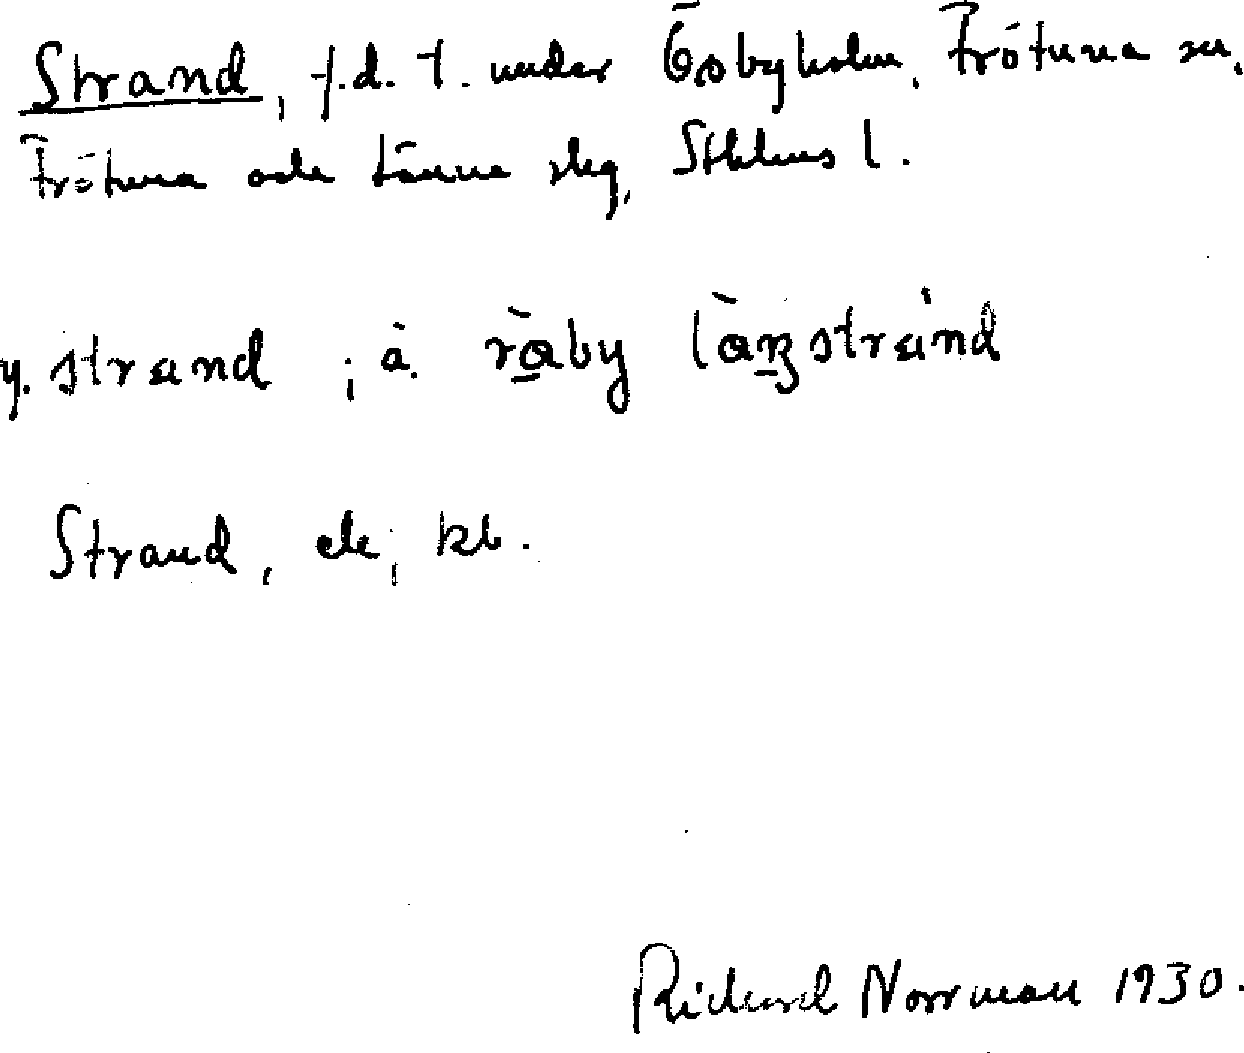 Strand, f.d. t. under Ösbyholm, Frötuna sn,
Frötuna och Länna slg, Sthlms l.
y. strand ; å. råby låŋstränd
Strand, ek, kb.
Richard Norrman 1930.